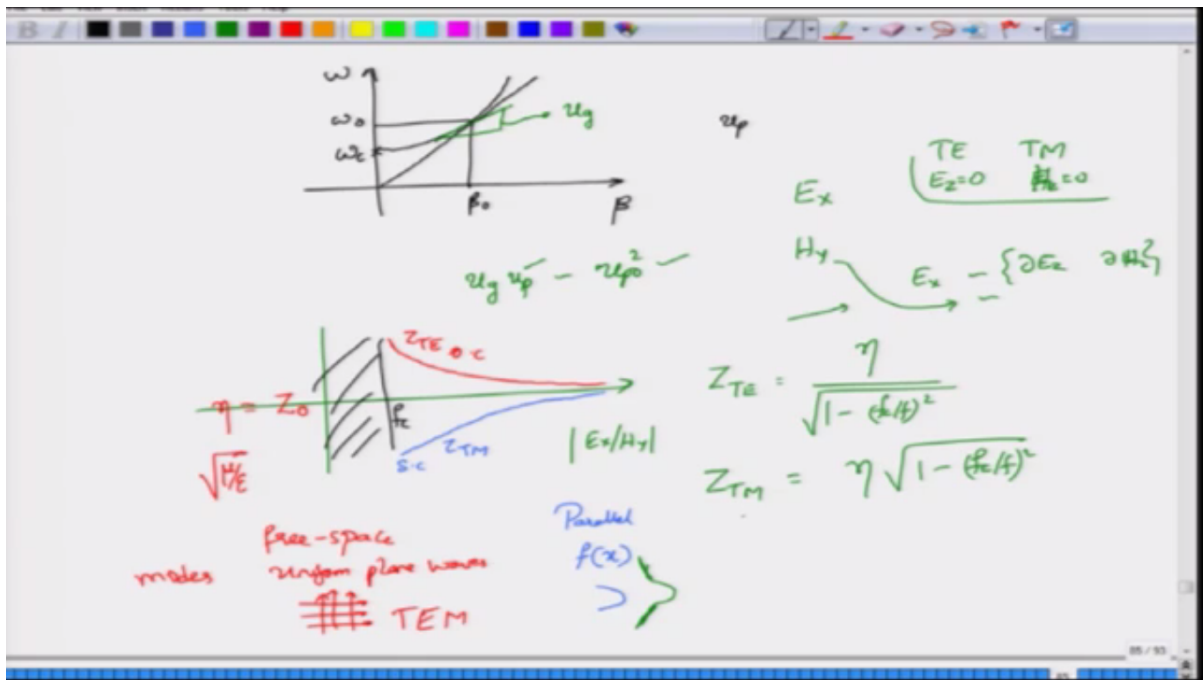 B I
ω
ω₀
ω_c
u_g
β₀
β
u_p
TE TM
E_z=0 H_z=0
E_x
H_y
E_x - {∂E_z ∂H_z}
u_g u_p - u_p0²
Z_TE O.C
η = Z₀
√μ/ε
f_c
S.C Z_TM
|E_x/H_y|
Z_TE = η / √1 - (f_c/f)²
Z_TM = η √1 - (f_c/f)²
free-space
modes uniform plane waves
TEM
Parallel
f(x)
85 / 93